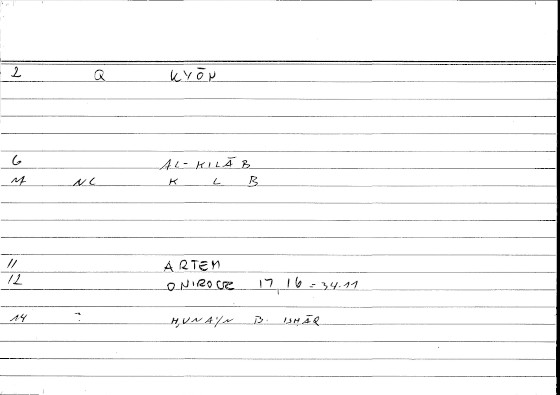 2 Q KYŌN
6 AL-KILĀB
M NC K L B
11 ARTEM
12 ONIROCR 17,16 = 34.11
14 : ḤUNAYN B. ISḤĀQ